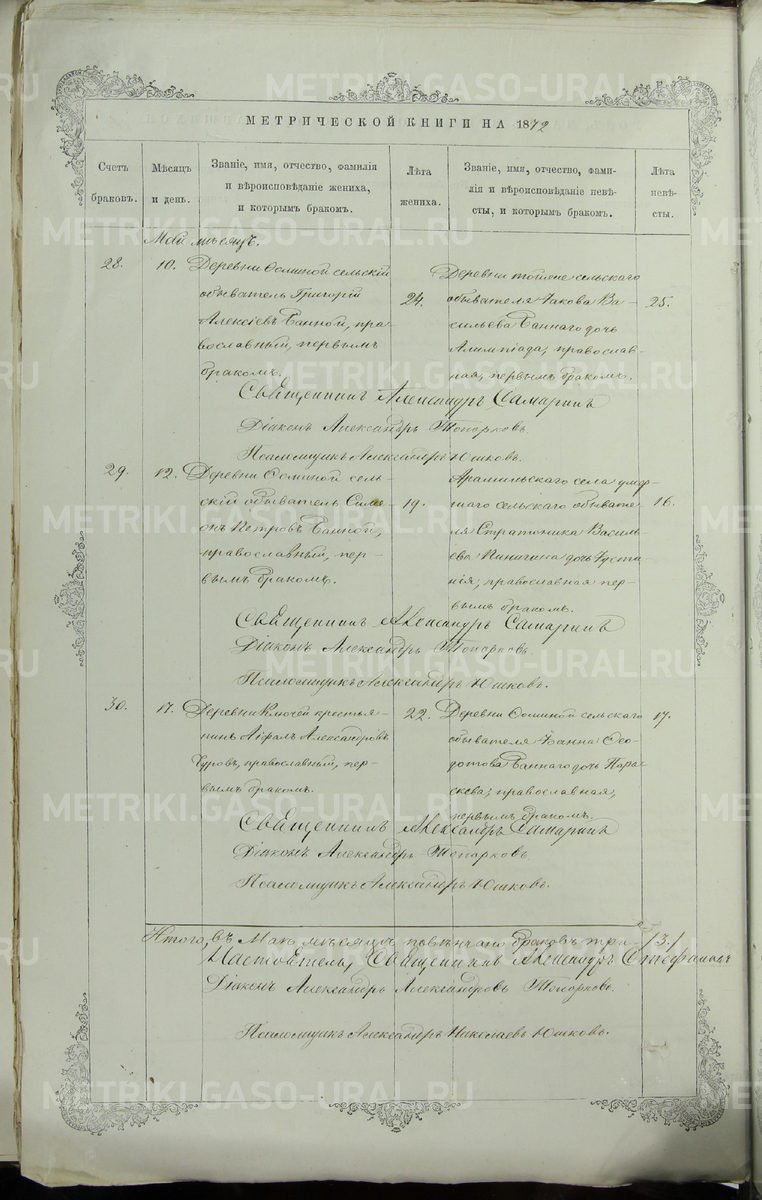 МЕТРИЧЕСКОЙ КНИГИ НА 1872
Счетъ браковъ.
Мѣсяцъ и день.
Званіе, имя, отчество, фамилія и вѣроисповѣданіе жениха, и которымъ бракомъ.
Лѣта жениха.
Званіе, имя, отчество, фамилія и вѣроисповѣданіе невѣсты, и которымъ бракомъ.
Лѣта невѣсты.
Май мѣсяцъ.
28.
10.
Деревни Осиной сельскій
обыватель Григорій
Алексіевъ Банной, пра-
вославный, первымъ
бракомъ.
24.
Деревни тойже сельскаго
обывателя Іакова Ва-
сильева Баннаго дочь
Алимпіада, православ-
ная, первымъ бракомъ.
25.
Священникъ Александръ Самаринъ
Діаконъ Александръ Топорковъ.
Псаломщикъ Александръ Юшковъ.
29.
12.
Деревни Осиной сель-
скій обыватель Симе-
онъ Петровъ Банной,
православный, пер-
вымъ бракомъ.
19.
Арамильскаго села
сельскаго обывате-
ля Стратоника Василь-
ева дочь Іуста-
нія, православная пер-
вымъ бракомъ.
16.
Священникъ Александръ Самаринъ
Діаконъ Александръ Топорковъ.
Псаломщикъ Александръ Юшковъ.
30.
17.
Деревни Ключей крестья-
нинъ Аифалъ Александровъ
Чуровъ, православный, пер-
вымъ бракомъ.
22.
Деревни Осиной сельскаго
обывателя Іоанна Ѳео-
дотова Баннаго дочь Пара-
скева, православная,
первымъ бракомъ.
17.
Священникъ Александръ Самаринъ
Діаконъ Александръ Топорковъ.
Псаломщикъ Александръ Юшковъ.
Итого, въ Маѣ мѣсяцѣ повѣнчано браковъ три /3./
Настоятель, Священникъ Александръ Стефановъ
Діаконъ Александръ Александровъ Топорковъ.
Псаломщикъ Александръ Николаевъ Юшковъ.
METRIKI.GASO-URAL.RU